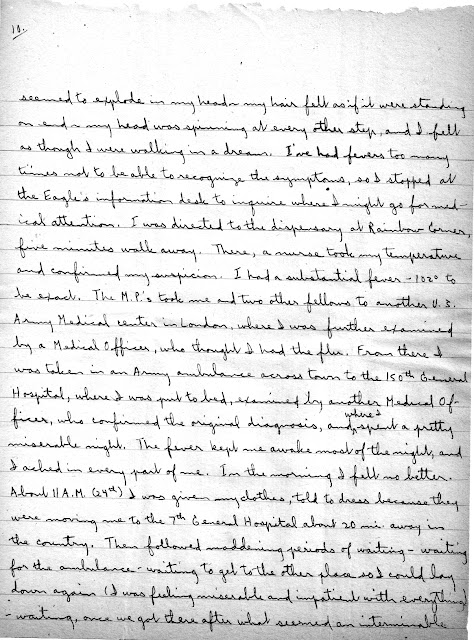 10.
seemed to explode in my head – my hair felt as if it were standing
on end – my head was spinning at every other step, and I felt
as though I were walking in a dream. I've had fevers too many
times not to be able to recognize the symptoms, so I stopped at
the Eagle's information desk to inquire where I might go for med-
ical attention. I was directed to the dispensary at Rainbow Corner,
five minutes walk away. There, a nurse took my temperature
and confirmed my suspicion. I had a substantial fever – 102° to
be exact. The M.P.'s took me and two other fellows to another U.S.
Army Medical center in London, where I was further examined
by a Medical Officer, who thought I had the flu. From there I
was taken in an Army ambulance across town to the 150th General
Hospital, where I was put to bed, examined by another Medical Of-
ficer, who confirmed the original diagnosis, and where I spent a pretty
miserable night. The fever kept me awake most of the night, and
I ached in every part of me. In the morning I felt no better.
About 11 A.M. (24th) I was given my clothes, told to dress because they
were moving me to the 7th General Hospital about 20 mi. away in
the country. Then followed maddening periods of waiting – waiting
for the ambulance – waiting to get to the other place so I could lay
down again (I was feeling miserable and impatient with everything)
– waiting, once we got there after what seemed an interminable